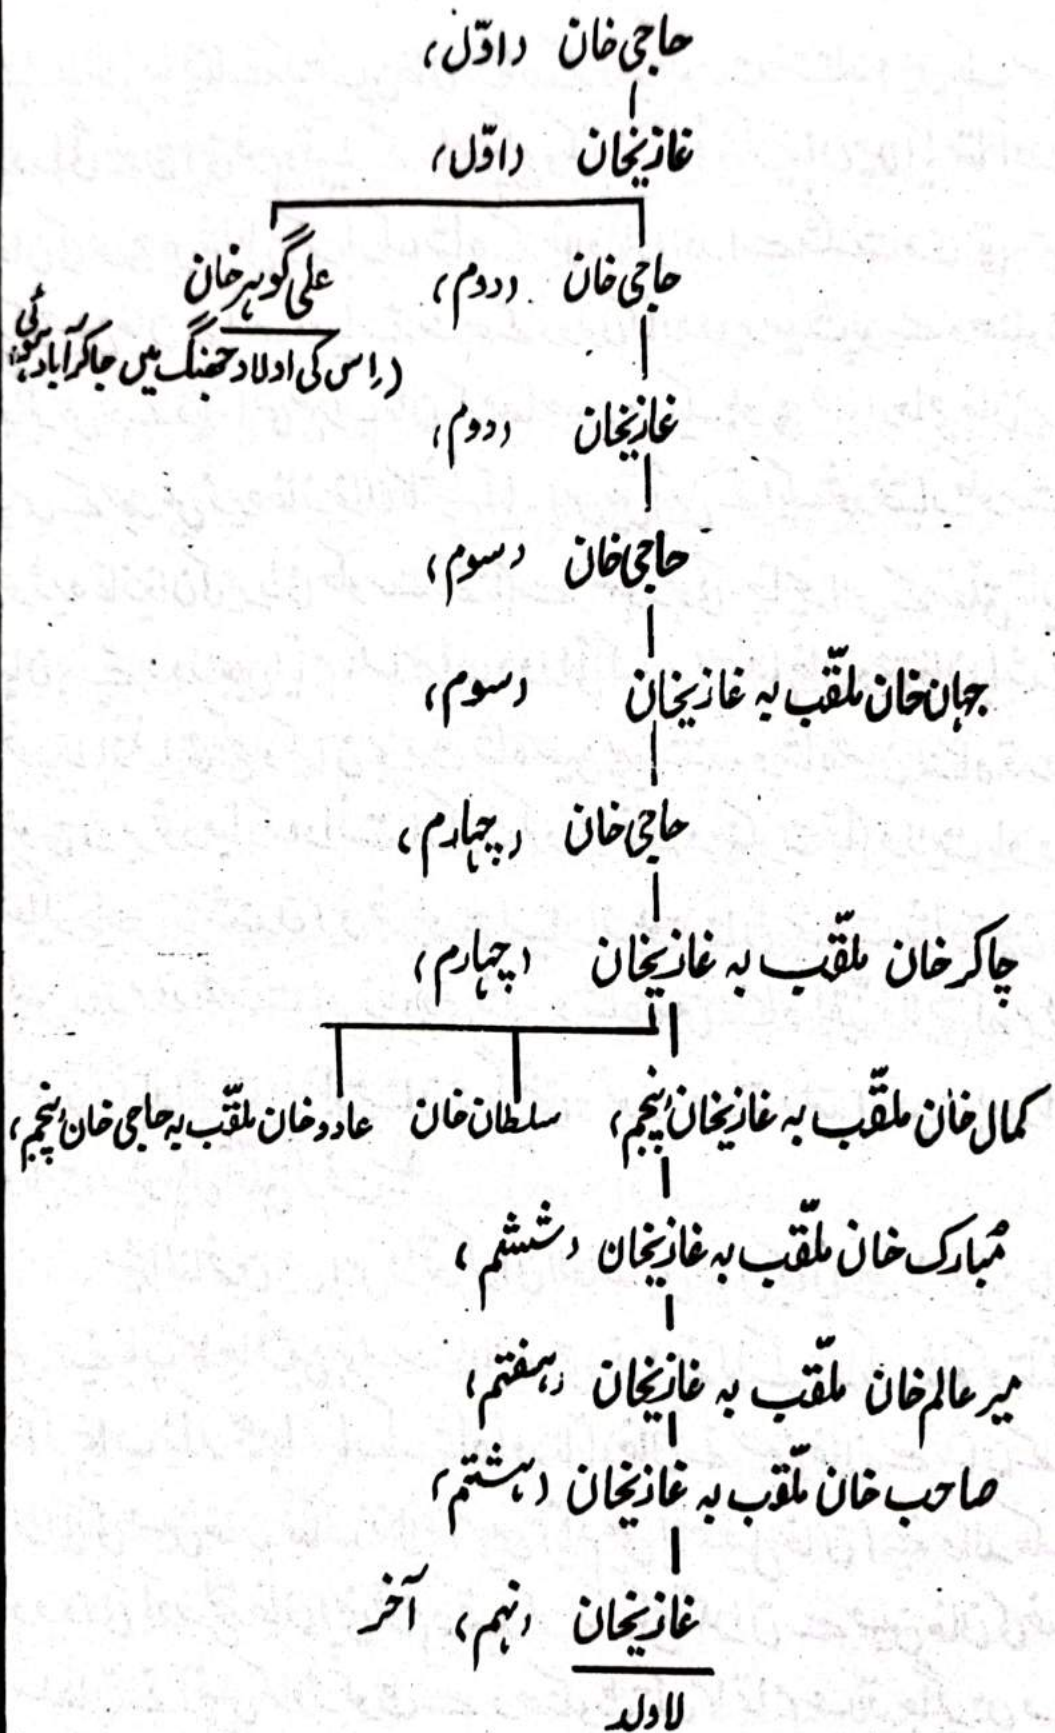 حاجی خان (اوّل)
غازیخان (اوّل)
حاجی خان (دوم) علی گوہر خان
(اس کی اولاد جھنگ میں جا کر آباد ہوئی)
غازیخان (دوم)
حاجی خان (سوم)
جہان خان ملقّب بہ غازیخان (سوم)
حاجی خان (چہارم)
چاکر خان ملقّب بہ غازیخان (چہارم)
کمال خان ملقّب بہ غازیخان (پنجم) سلطان خان عادو خان ملقّب بہ حاجی خان (پنجم)
مُبارک خان ملقّب بہ غازیخان (ششم)
میر عالم خان ملقّب بہ غازیخان (ہفتم)
صاحب خان ملقّب بہ غازیخان (ہشتم)
غازیخان (نہم) آخر
لاولد